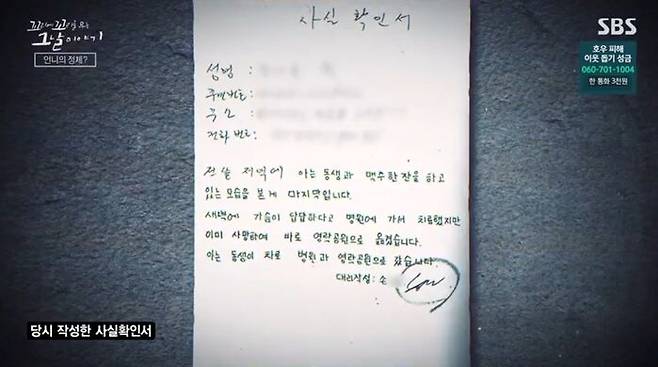 꼬리에 꼬리를 무는
그날 이야기
언니의 정체?
SBS
호우 피해
이웃 돕기 성금
060-701-1004
한 통화 3천원
사실 확인서
성명 :
주민번호 :
주소 :
전화 번호 :
전날 저녁에 아는 동생과 맥주 한잔을 하고
있는 모습을 본게 마지막입니다.
새벽에 가슴이 답답하다고 병원에 가서 치료했지만
이미 사망하여 바로 영락공원으로 옮겼습니다.
아는 동생이 차로 병원과 영락공원으로 갔습니다.
대리작성 : 손
당시 작성한 사실확인서